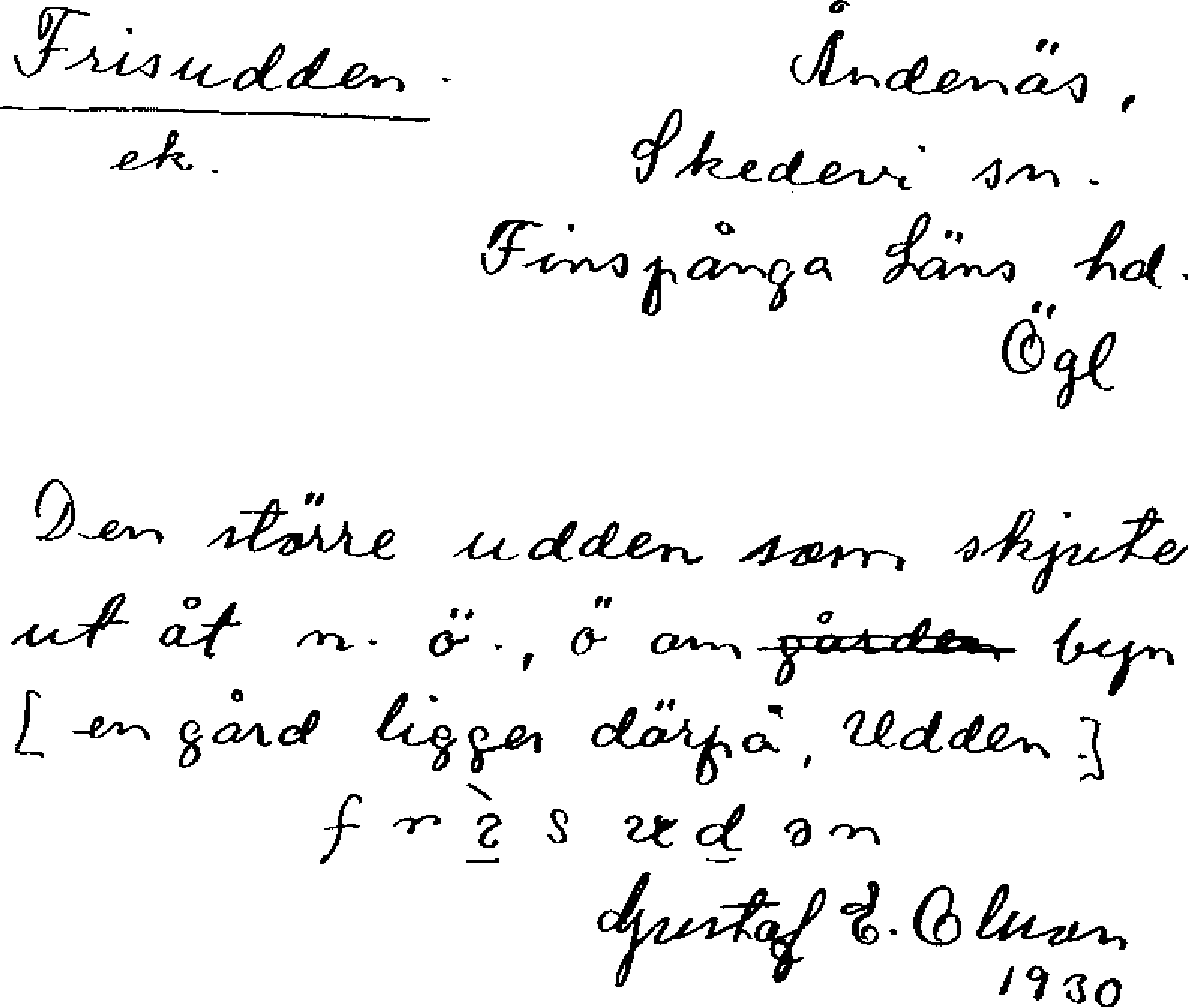 Frisudden.
ek.
Åndenäs,
Skedevi sn.
Finspånga Läns hd.
Ögl
Den större udden som skjute
ut åt n. ö., ö om gården byn
[en gård ligger därpå, Udden.]
Gustaf E. Oluson
1930